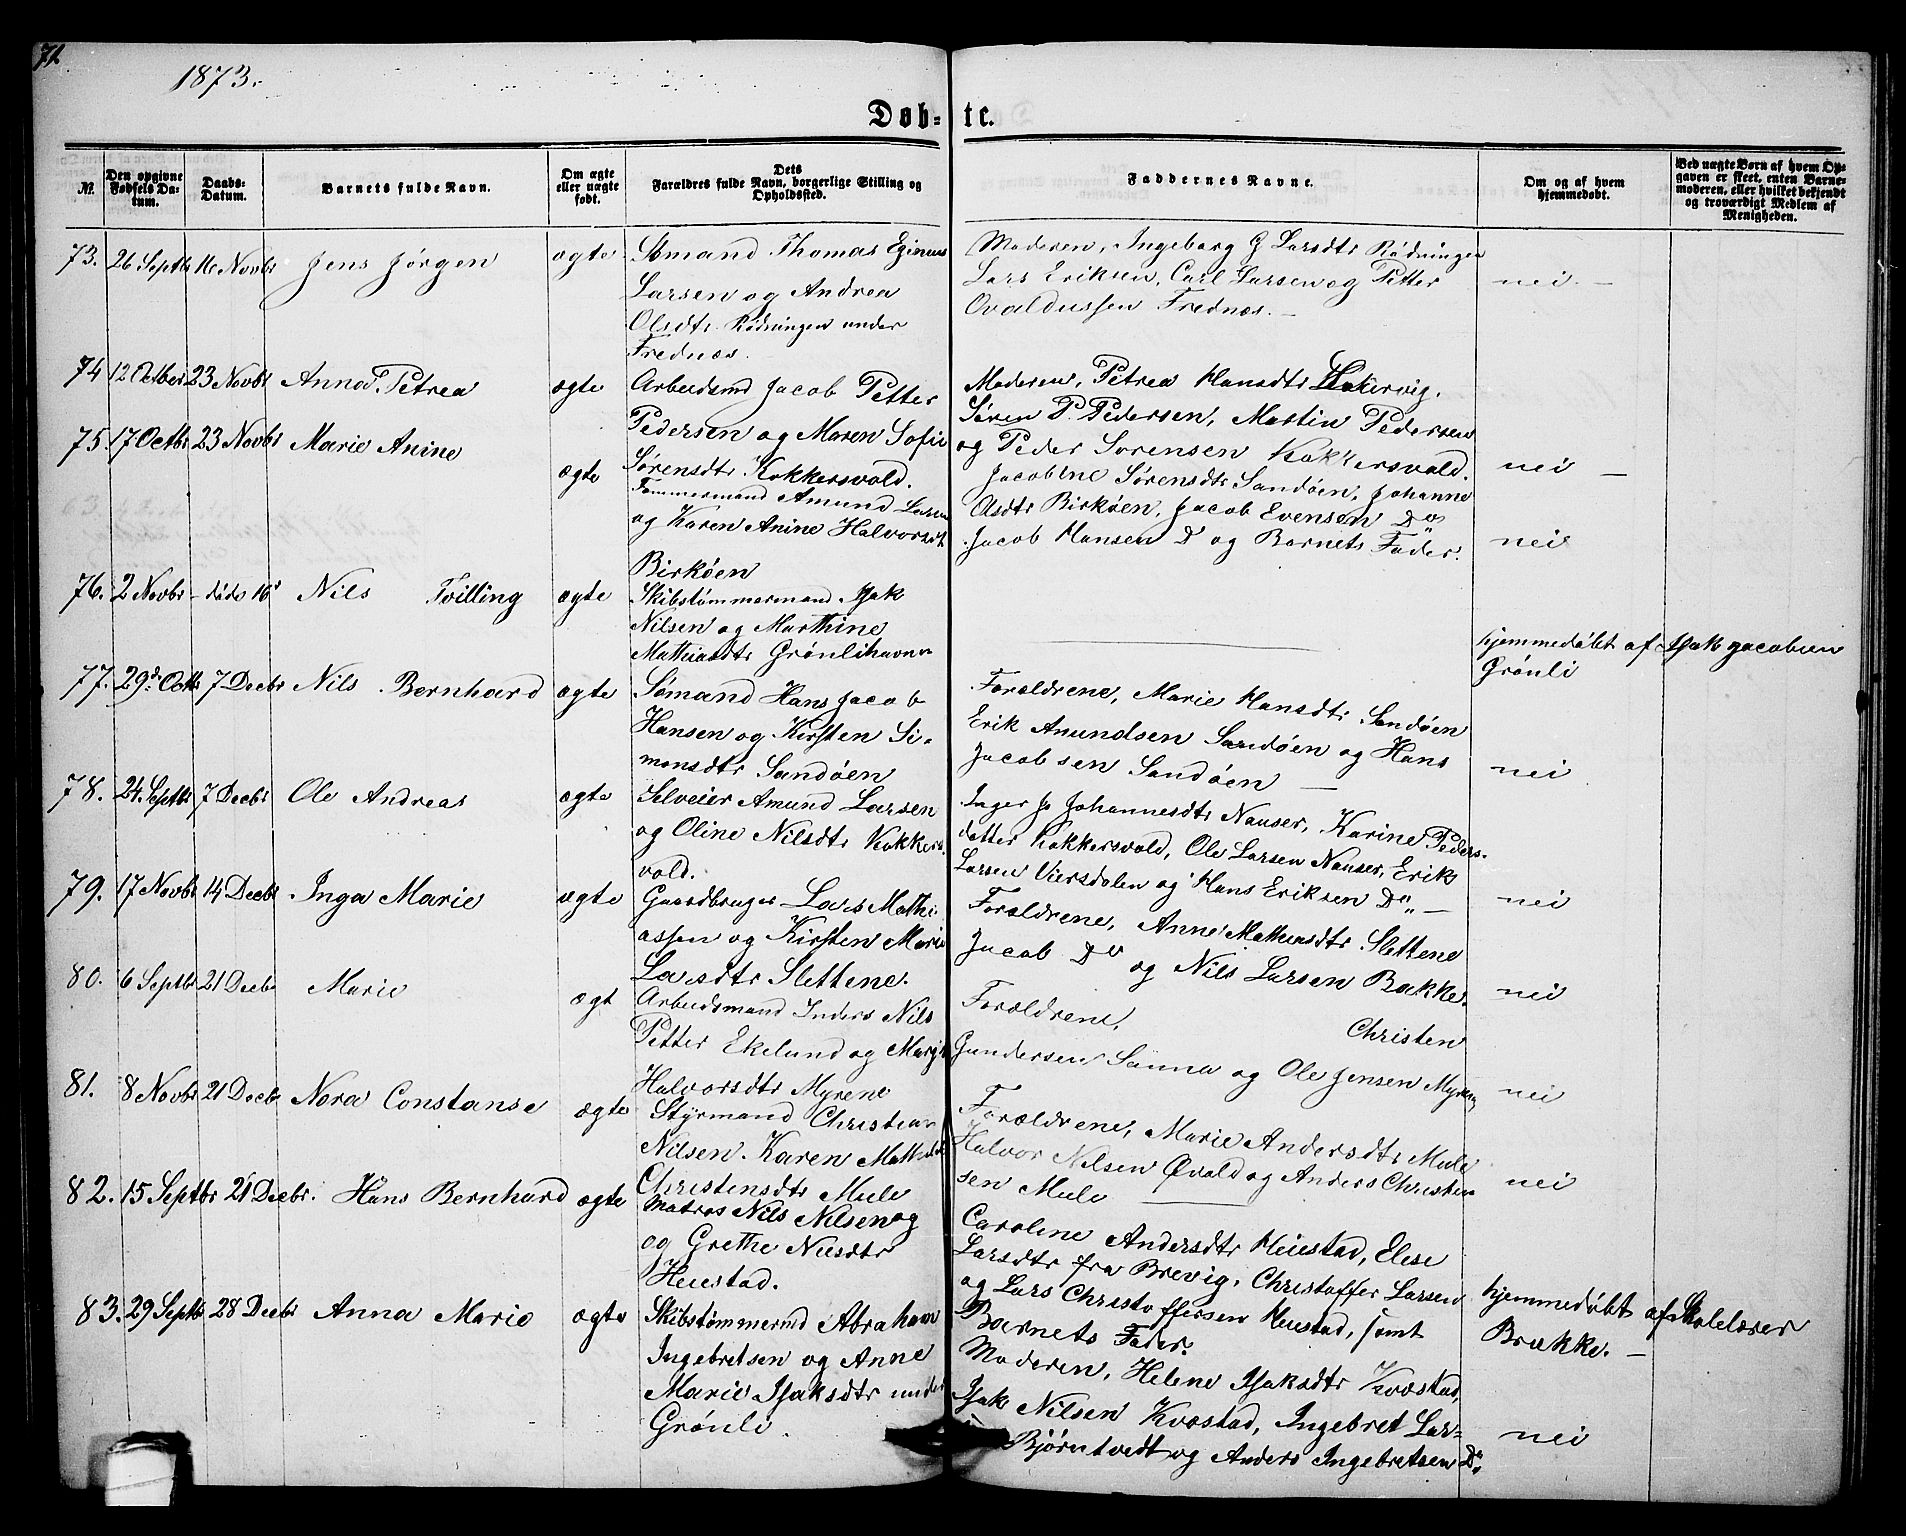 71
1873.
Døb-te.
№.
Den opgivne Fødsels Datum.
Daabs-Datum.
Barnets fulde Navn.
Om ægte eller uægte født.
Dets Forældres fulde Navn, borgerlige Stilling og Opholdssted.
Faddernes Navne.
Om og af hvem hjemmedøbt.
Ved uægte Børn af hvem Opgaven er skeet, enten Barnemoderen, eller hvilket bekjendt og troværdigt Medlem af Menigheden.
73. 26 Septbr 16 Novbr Jens Jørgen ægte
Sømand Thomas Eginus
Larsen og Andrea
Olsdtr. Rødningen under
Frednæs.
Moderen, Ingeborg G Larsdtr Rødningen
Lars Eriksen, Carl Larsen og Petter
Ovaldussen Frednæs. —
nei. —
74 12 Octber 23 Novbr Anna Petrea ægte
Arbeidsmd Jacob Petter
Pedersen og Maren Sofie
Sørensdtr Kokkersvold.
Moderen, Petrea Hansdtr
Søren P. Pedersen, Martin Pedersen
og Peder Sørensen Kokkersvold.
nei —
75. 17 Octbr 23 Novbr Marie Anine ægte
Tømmermand Amund Larsen
og Karen Anine Halvorsdt
Birkøen
Jacobine Sørensdtr Sandøen, Johanne
Olsdtr Birkøen, Jacob Evensen Do
Jacob Hansen Do og Barnets Fader.
nei
76. 2 Novbr Nils Tvilling ægte
Skibstømmermand Isak
Nilsen og Marthine
Mathiasdtr Grønlihavnen
hjemmedøbt af Isak Jacobsen
Grønli
77. 29d. Octb 7 Decbr Nils Bernhard ægte
Sømand Hans Jacob
Hansen og Kirsten Si-
monsdtr Sandøen
Forældrene, Marie Hansdtr Sandøen
Erik Amundsen Sandøen og Hans
Jacobsen Sandøen —
nei
78. 24 Septbr 7 Decbr Ole Andreas ægte
Selveier Amund Larsen
og Oline Nilsdtr Kokkers
vold.
Inger Johannesdtr Nauser, Karine Peders-
datter Kokkersvold, Ole Larsen Nauser, Erik
Larsen Viersdalen og Hans Eriksen Do —
nei
79. 17 Novbr 14 Decbr Inga Marie ægte
Gaardbruger Lars Mathi
assen og Kirsten Marie
Larsdtr Slettene.
Forældrene, Anne Mathiasdtr Slettene
Jacob Do og Nils Larsen Bakke.
nei
80. 6 Septbr 21 Decbr Marie ægt
Arbeidsmand Nils
Petter Ekelund og Margit
Halvorsdtr Myrene
Forældrene, Christen
Gundersen Sanna og Ole Jensen Myrene
nei
81. 8 Novbr 21 Decbr Nora Constanse ægte
Styrmand Christian
Nilsen. Karen Mathilde
Christensdtr Mule
Forældrene, Marie Andersdtr Mule
Halvor Nilsen Øvald og Anders Christen
sen Mule —
nei
82. 15 Septbr 21 Decbr. Hans Bernhard ægte
Matros Nils Nilsen og
og Grethe Nilsdtr
Heiestad.
Caroline Andersdtr Heiestad, Elise
Larsdtr fra Brevig, Christoffer Larsen
og Lars Christoffersen Heistad, samt
Barnets Fader.
hjemmedøbt af Skolelærer
Brække. —
83. 29 Septbr 28 Decbr Anna Marie ægte
Skibstømmermd Abraham
Ingebretsen og Anne
Marie Isaksdtr under
Grønli
Moderen, Helene Isaksdtr Kvæstad,
Isak Nilsen Kvæstad, Ingebret Lar-
Bjørntvedt og Anders Ingebretsen Do
nei